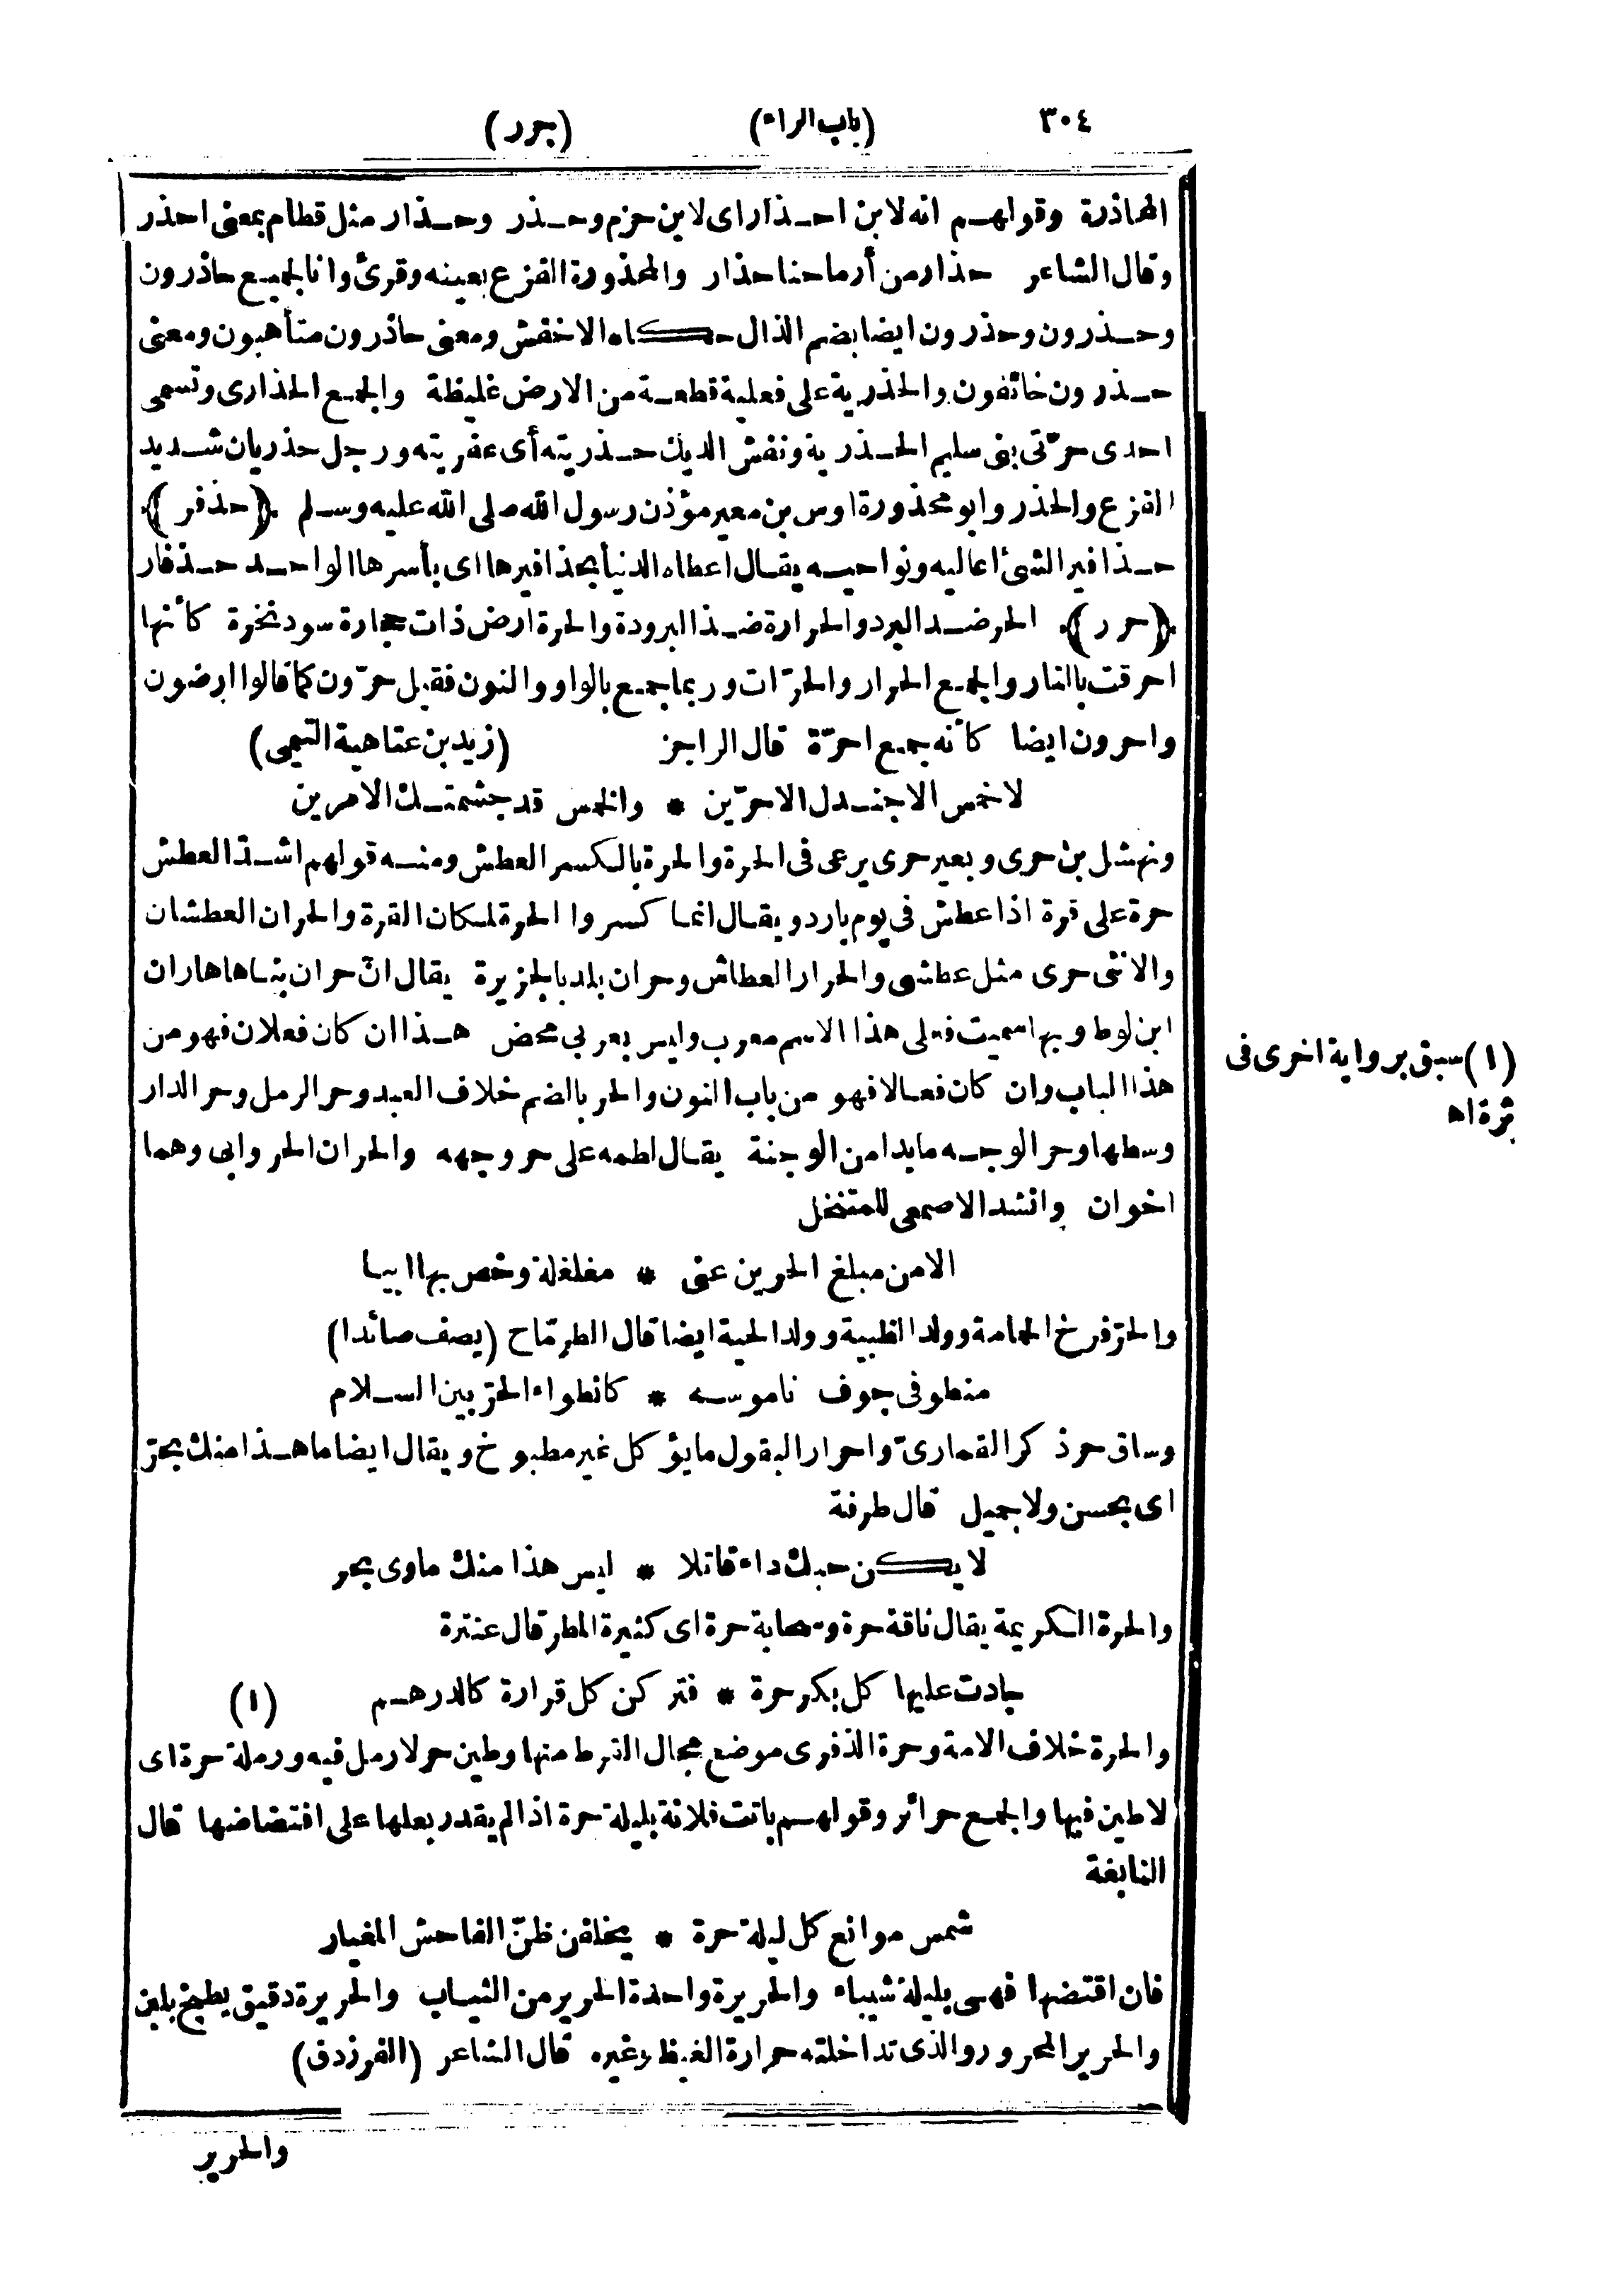 ٣٠٤ (باب الراء) (حرر)
المحاذرة وقولهم انه لابن احذار اى لابن حزم وحذر وحذار مثل قطام بمعنى احذر
وقال الشاعر حذار من أرماحنا حذار والمحذورة الفزع بعينه وقرئ وانا لجميع حاذرون
وحذرون وحذرون ايضا بضم الذال حكاه الاخفش ومعنى حاذرون متأهبون ومعنى
حذرون خائفون والحذرية على فعلية قطعة من الارض غليظة والجمع الحذارى وتسمى
احدى حرّتى بنى سليم الحذرية ونفش الديك حذريته أى عفريته ورجل حذريان شديد
الفزع والحذر وابو محذورة اوس بن معير مؤذن رسول الله صلى الله عليه وسلم ﴿حذفر﴾
حذافير الشئ اعاليه ونواحيه يقال اعطاه الدنيا بحذافيرها اى بأسرها الواحد حذفار
﴿حرر﴾ الحر ضد البرد والحرارة ضد البرودة والحرة ارض ذات حجارة سود نخرة كأنها
احرقت بالنار والجمع الحرار والحرّات وربما جمع بالواو والنون فقيل حرّون كما قالوا ارضون
واحرون ايضا كأنه جمع احرّة قال الراجز (زيد بن عتاهية التيمى)
لا خمس الا جندل الاحرّين * والخمس قد جشمتك الامرين
ونهشل بن حرى وبعير حرى يرعى فى الحرة والحرة بالكسر العطش ومنه قولهم اشدّ العطش
حرة على قرة اذا عطش فى يوم بارد ويقال انما كسروا الحرة لمكان القرة والحران العطشان
والانثى حرى مثل عطشى والحرار العطاش وحران بلد بالجزيرة يقال انّ حران بناها هاران
ابن لوط وبها سميت فعلى هذا الاسم معرب وليس بعربى محض هذا ان كان فعلان فهو من
هذا الباب وان كان فعالا فهو من باب النون والحر بالضم خلاف العبد وحر الرمل وحر الدار
وسطها وحر الوجه ما بدا من الوجنة يقال لطمه على حر وجهه والحران الحر وابى وهما
اخوان وانشد الاصمعى للمتنخل
الا من مبلغ الحرين عنى * مغلغلة وخص بها ابيا
والحرّ فرخ الحمامة وولد الظبية وولد الحية ايضا قال الطرمّاح (يصف صائدا)
منطو فى جوف ناموسه * كانطواء الحرّ بين السلام
وساق حر ذكر القمارىّ واحرار البقول ما يؤكل غير مطبوخ ويقال ايضا ما هذا منك بحرّ
اى بحسن ولا جميل قال طرفة
لا يكن حبك داء قاتلا * ليس هذا منك ماوى بحر
والحرة الكريمة يقال ناقة حرة وسحابة حرة اى كثيرة المطر قال عنترة
جادت عليها كل بكر حرة * فتركن كل قرارة كالدرهم (١)
والحرة خلاف الامة وحرة الذفرى موضع مجال القرط منها وطين حر لا رمل فيه ورملة حرة اى
لا طين فيها والجمع حرائر وقولهم باتت فلانة بليلة حرة اذا لم يقدر بعلها على افتضاضها قال
النابغة
شمس موانع كل ليلة حرة * يخلفن ظنّ الفاحش المغيار
فان اقتضها فهى بليلة شيباء والحريرة واحدة الحرير من الثياب والحريرة دقيق يطبخ بلبن
والحرير المحرور والذى تداخلته حرارة الغيظ وغيره قال الشاعر (الفرزدق)
والحرير
(١) سبق برواية اخرى فى
ثرة اه